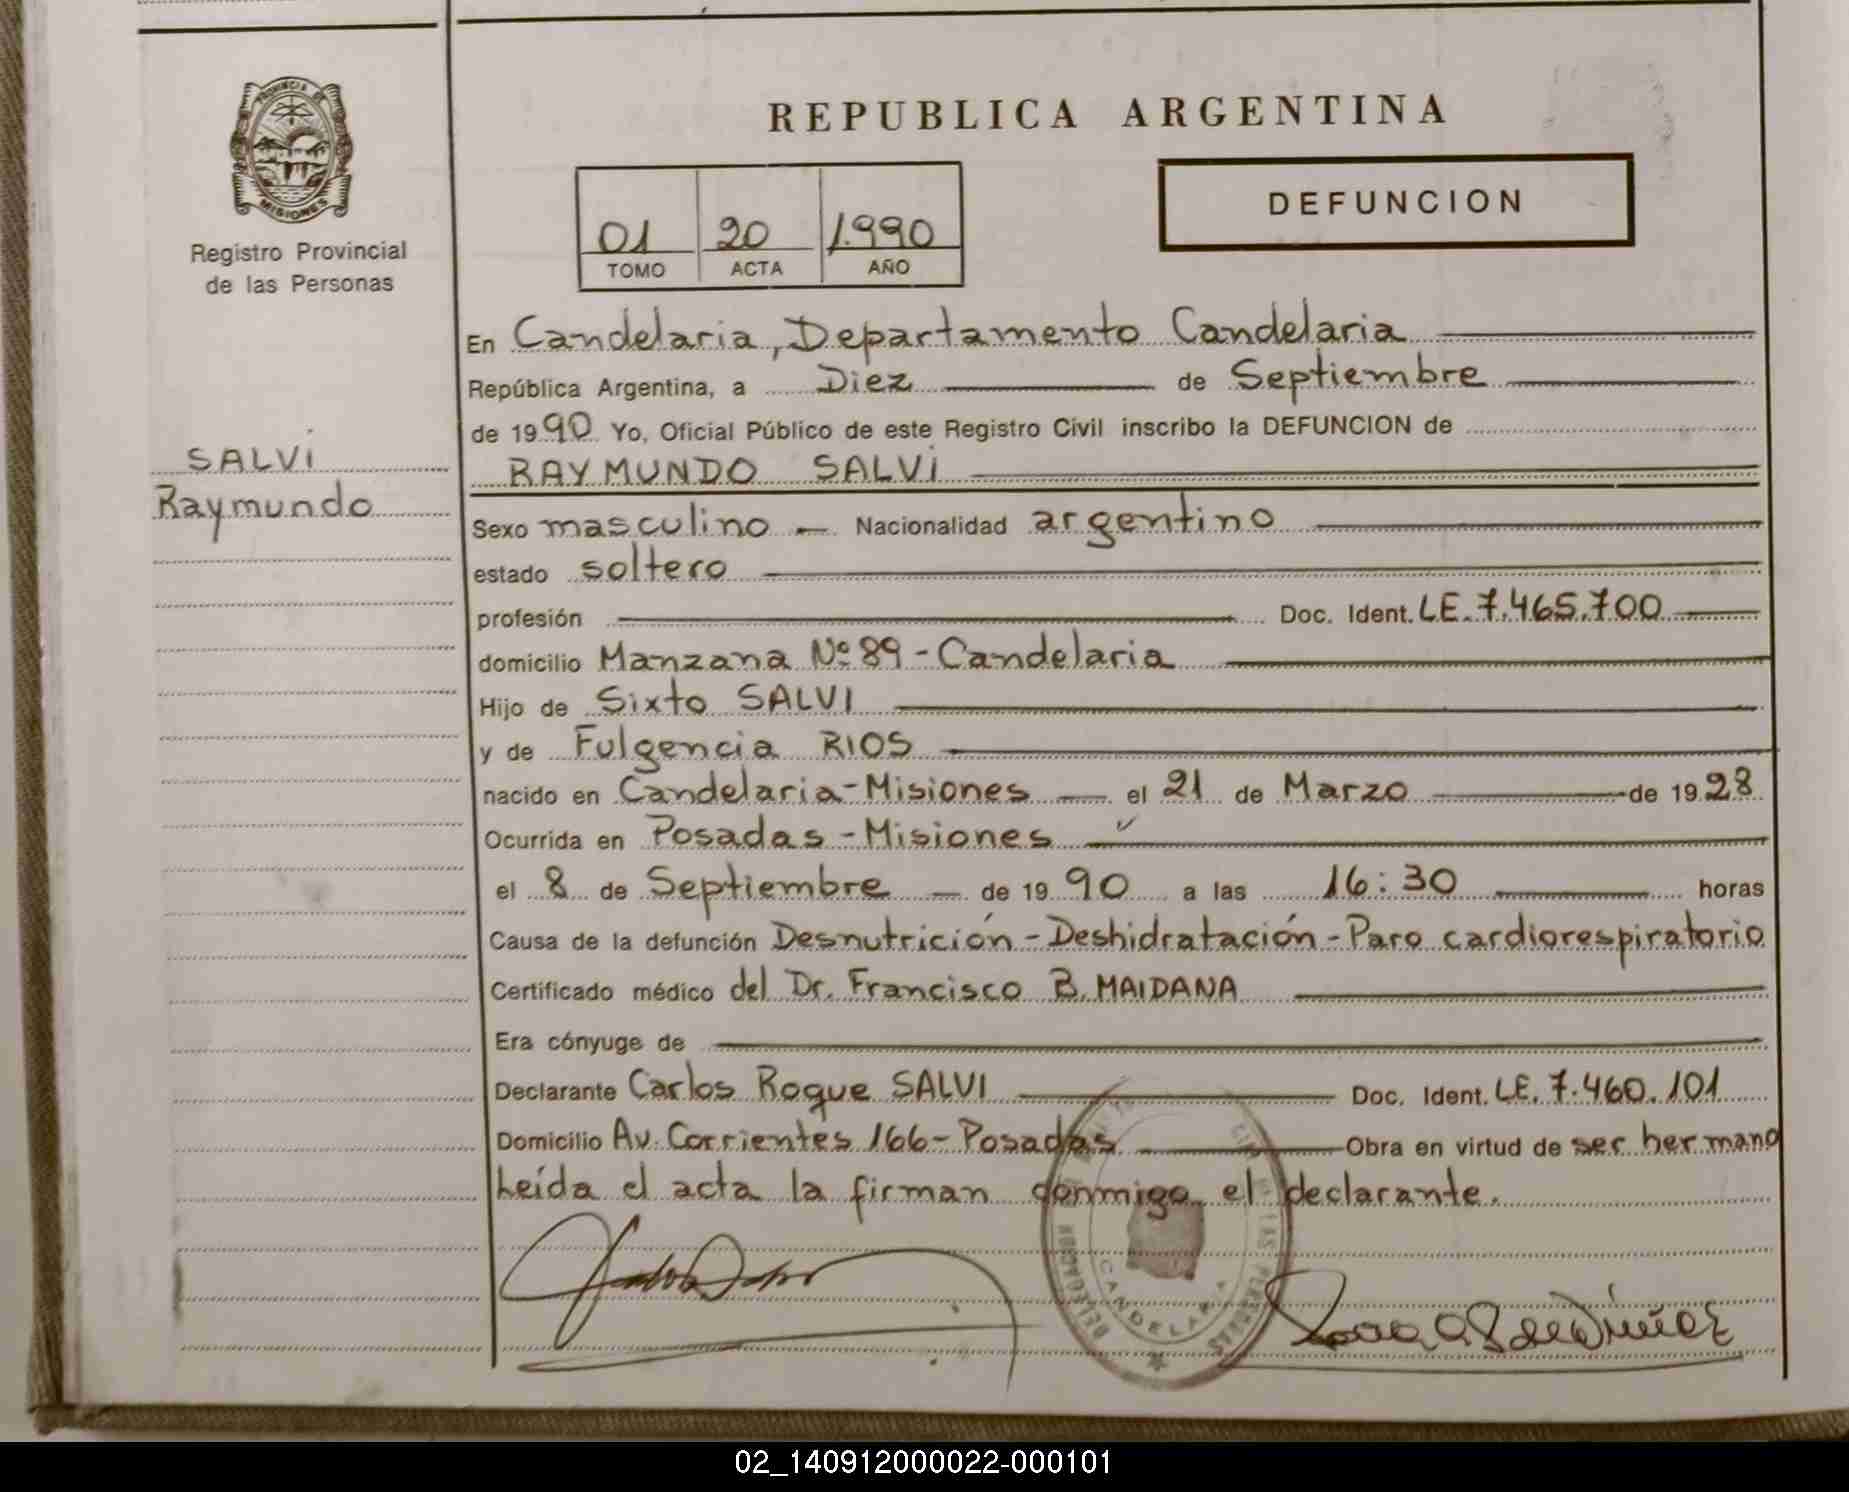 PROVINCIA DE
MISIONES
Registro Provincial
de las Personas
SALVI
Raymundo
REPUBLICA ARGENTINA
01 20 1.990
TOMO ACTA AÑO
DEFUNCION
En Candelaria, Departamento Candelaria
República Argentina, a Diez de Septiembre
de 1990 Yo, Oficial Público de este Registro Civil inscribo la DEFUNCION de
RAYMUNDO SALVI
Sexo masculino Nacionalidad argentino
estado soltero
profesión Doc. Ident. LE. 7.465.700
domicilio Manzana Nº 89 - Candelaria
Hijo de Sixto SALVI
y de Fulgencia RIOS
nacido en Candelaria-Misiones el 21 de Marzo de 1928
Ocurrida en Posadas - Misiones
el 8 de Septiembre de 1990 a las 16:30 horas
Causa de la defunción Desnutrición - Deshidratación - Paro cardiorespiratorio
Certificado médico del Dr. Francisco B. MAIDANA
Era cónyuge de
Declarante Carlos Roque SALVI Doc. Ident. LE. 7.460.101
Domicilio Av. Corrientes 166 - Posadas Obra en virtud de ser hermano
Leída el acta la firman conmigo el declarante.
DELEGACION CANDELARIA
LAS PERSONAS
02_140912000022-000101